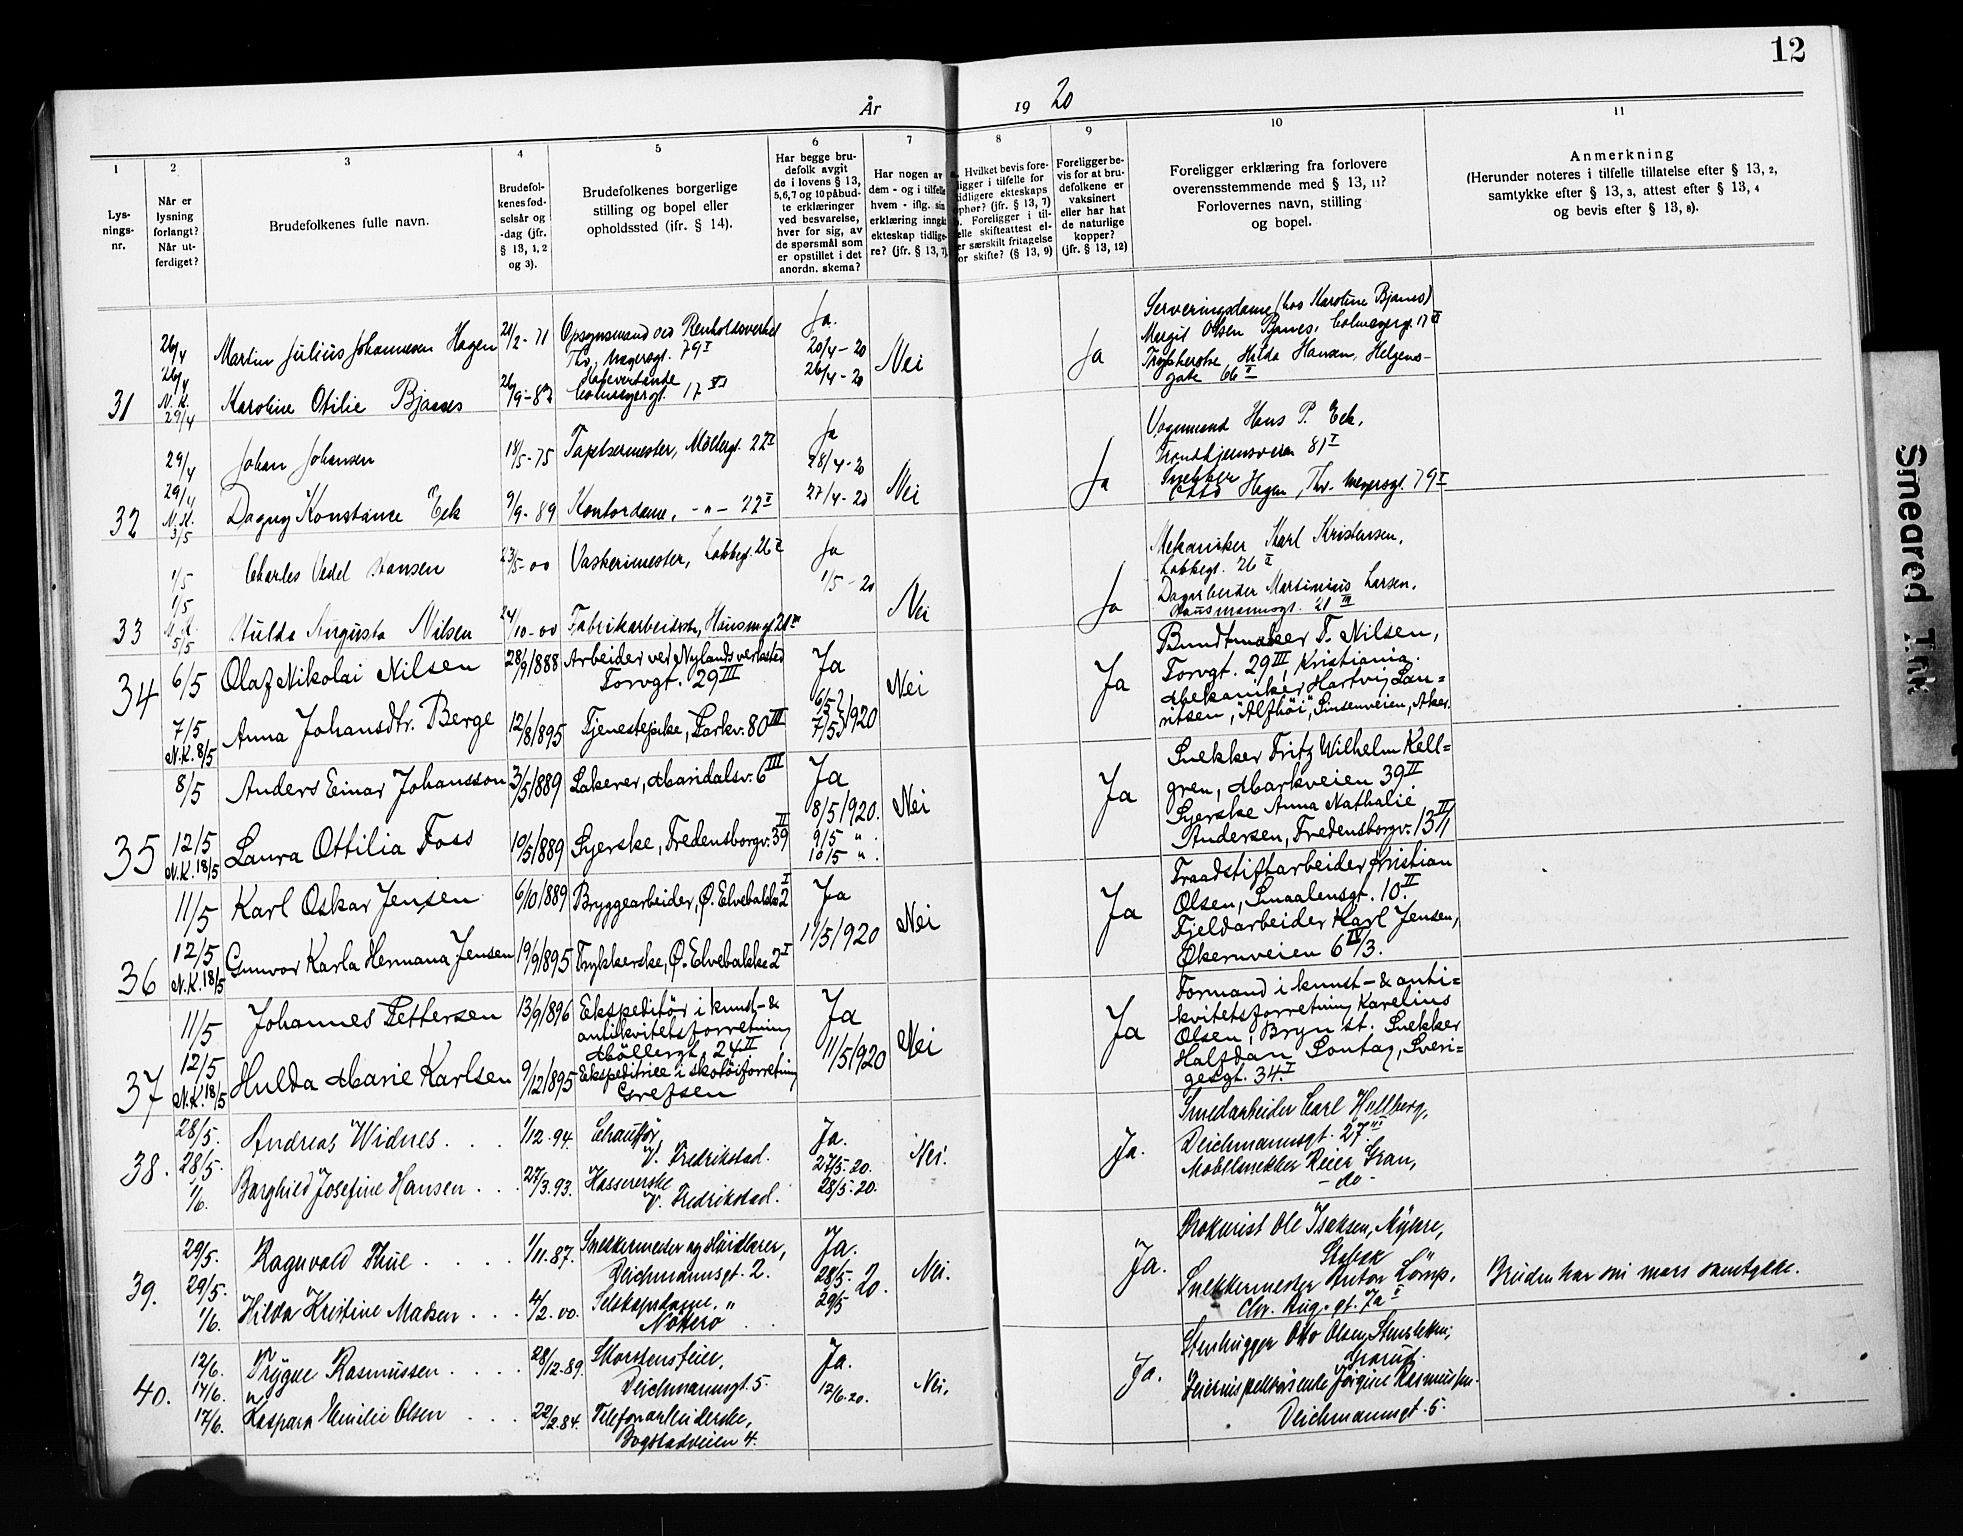 12
År 1920
1 2 3 4 5 6 7 8 9 10 11
Lys-
nings-
nr.
Når er
lysning
forlangt?
Når ut-
ferdiget?
Brudefolkenes fulle navn.
Brudefol-
kenes fød-
selsår og
-dag (jfr.
§ 13, 1, 2
og 3).
Brudefolkenes borgerlige
stilling og bopel eller
opholdssted (jfr. § 14).
Har begge bru-
defolk avgit
de i lovens § 13,
5,6,7 og 10 påbud-
te erklæringer
ved besvarelse,
hver for sig, av
de spørsmål som
er opstillet i det
anordn. skema?
Har nogen av
dem - og i tilfelle
hvem - iflg. sin
erklæring inngåt
ekteskap tidlige-
re? (jfr. § 13, 7)
Hvilket bevis fore-
ligger i tilfelle for
tidligere ekteskaps
ophør? (jfr. § 13, 7)
b. Foreligger i til-
felle skifteattest el-
ler særskilt fritagelse
for skifte? (§ 13, 9)
Foreligger be-
vis for at bru-
defolkene er
vaksinert
eller har hat
de naturlige
kopper?
(jfr. § 13, 12)
Foreligger erklæring fra forlovere
overensstemmende med § 13, 11?
Forlovernes navn, stilling
og bopel.
Anmerkning
(Herunder noteres i tilfelle tillatelse efter § 13, 2,
samtykke efter § 13, 3, attest efter § 13, 4
og bevis efter § 13, 8).
31
26/4
26/4
N.K.
29/4
Martin Julius Johannesen Hagen
Karoline Otilie Bjanes
21/2-71
26/9-82
Opsynsmand ved Renholdsverket
Thv. Meyersgt. 79 I
17 VI
Ja.
20/4-20
26/4-20
Nei
Ja
Serveringsdame (hos Karoline Bjanes)
Margit Olsen Bjanes, 17 VI
Hilda Hansen, Helgens-
gate 66 I
32
29/4
29/4
N.K.
3/5
Johan Johansen
Dagny Konstance Eek
18/5-75
9/9-89
Tapetsermester, Møllergt. 22 I
Kontordame, -"- 22 I
Ja
28/4-20
27/4-20
Nei
Ja
Vognmand Hans P. Eek,
Trondhjemsveien 81 I
Snekker
Otto Hagen, Thv. Meyersgt. 79 I
33
1/5
1/5
N.K.
5/5
Charles Vedel Hansen
Hulda Augusta Nilsen
23/5-00
24/10-00
Vaskerimester, Lakkegt. 26 I
Fabrikarbeiderske, Hausmgt 21 III
Ja
1/5-20
Nei
Ja
Mekaniker Karl Kristensen,
Lakkegt. 26 I
Dagarbeider Martinius Larsen,
Hausmannsgt. 21 III
34
6/5
7/5
N.K. 8/5
Olaf Nikolai Nilsen
Anna Johansdtr. Berge
28/9 1888
12/8 1895
Arbeider ved Nylands verksted
Torvgt. 29 III
Tjenestepike, Parkv. 80 III
Ja
6/5
7/5 1920
Nei
Ja
Bundtmaker T. Nilsen,
Torvgt. 29 III, Kristiania.
Mekaniker Hartvig Lau-
ritsen, "Alfhöi", Sinsenveien, Aker.
35
8/5
12/5
N.K. 18/5
Anders Einar Johansson
Laura Ottilia Foss
3/5 1889
10/5 1889
Lakerer, Maridalsv. 6 III
Syerske, Fredensborgv. 39 II
Ja
8/5 1920.
9/5 "
10/5 ".
Nei
Ja
Snekker Fritz Wilhelm Kell=
gren, Markveien 39 II
Syerske Anna Nathalie
Andersen, Fredensborgv. 13 II
36
11/5
12/5
N.K. 18/5
Karl Oskar Jensen
Gunvor Karla Hermana Jensen
6/10 1889
19/9 1895
Bryggearbeider, Ø. Elvebakke 2 I
Trykkerske, Ø. Elvebakke 2 I
Ja
11/5 1920
Nei
Ja
Traadstiftarbeider Kristian
Olsen, Smaalensgt. 10 II.
Fjeldarbeider Karl Jensen,
Økernveien 6 IV/3.
37
11/5
12/5
N.K. 18/5
Johannes Pettersen
Hulda Marie Karlsen
13/9 1896
9/12 1895
Ekspeditör i kunst- &
antikvitetsforretning
Möllergt. 24 II
Ekspeditrice i skotöiforretning
Grefsen
Ja
11/5 1920
Nei
Ja
Formand i kunst- & anti=
kvitetsforretning Karelius
Olsen, Bryn st. Snekker
Halfdan Sontag, Sveri=
gesgt. 34 I.
38.
28/5.
28/5.
1/6.
Andreas Widnes . . .
Borghild Josefine Hansen . . .
1/12-94.
27/3.93.
Chauffør
V. Fredrikstad.
Kassererske
V. Fredrikstad.
Ja.
27/5-20.
28/5-20.
Nei.
Ja.
Smedarbeider Carl Hellberg,
Deichmannsgt. 27 III
Møbelsnekker Reier Gran,
- do -
39.
29/5.
29/5.
1/6.
Ragnvald Thue . . . .
Hilda Kristine Madsen . . .
1/11.87.
4/2.00.
Snekkermester og Haandlærer,
Deichmannsgt. 2.
Selskapsdame, "
Nøtterø . .
Ja.
28/5-20.
29/5
Nei.
Ja.
Prokurist Ole Isaksen, Myhre,
Stabekk
Snekkermester Anton Lömp,
Chr. Aug. gt. 7a I
Bruden har sin mors samtykke.
40.
12/6.
17/6.
17/6.
Trygve Rasmussen . . . .
Kaspara Emilie Olsen . . .
28/12-89.
22/2.84.
Skorstensfeier,
Deichmannsgt. 5.
Telefonarbeiderske,
Bogstadveien 4.
Ja.
12/6-20.
Nei.
Ja.
Stenhugger Otto Olsen, Stensletten,
Grorud.
Jörgine Rasmussen.
Deichmannsgt. 5.
Smeared Ink